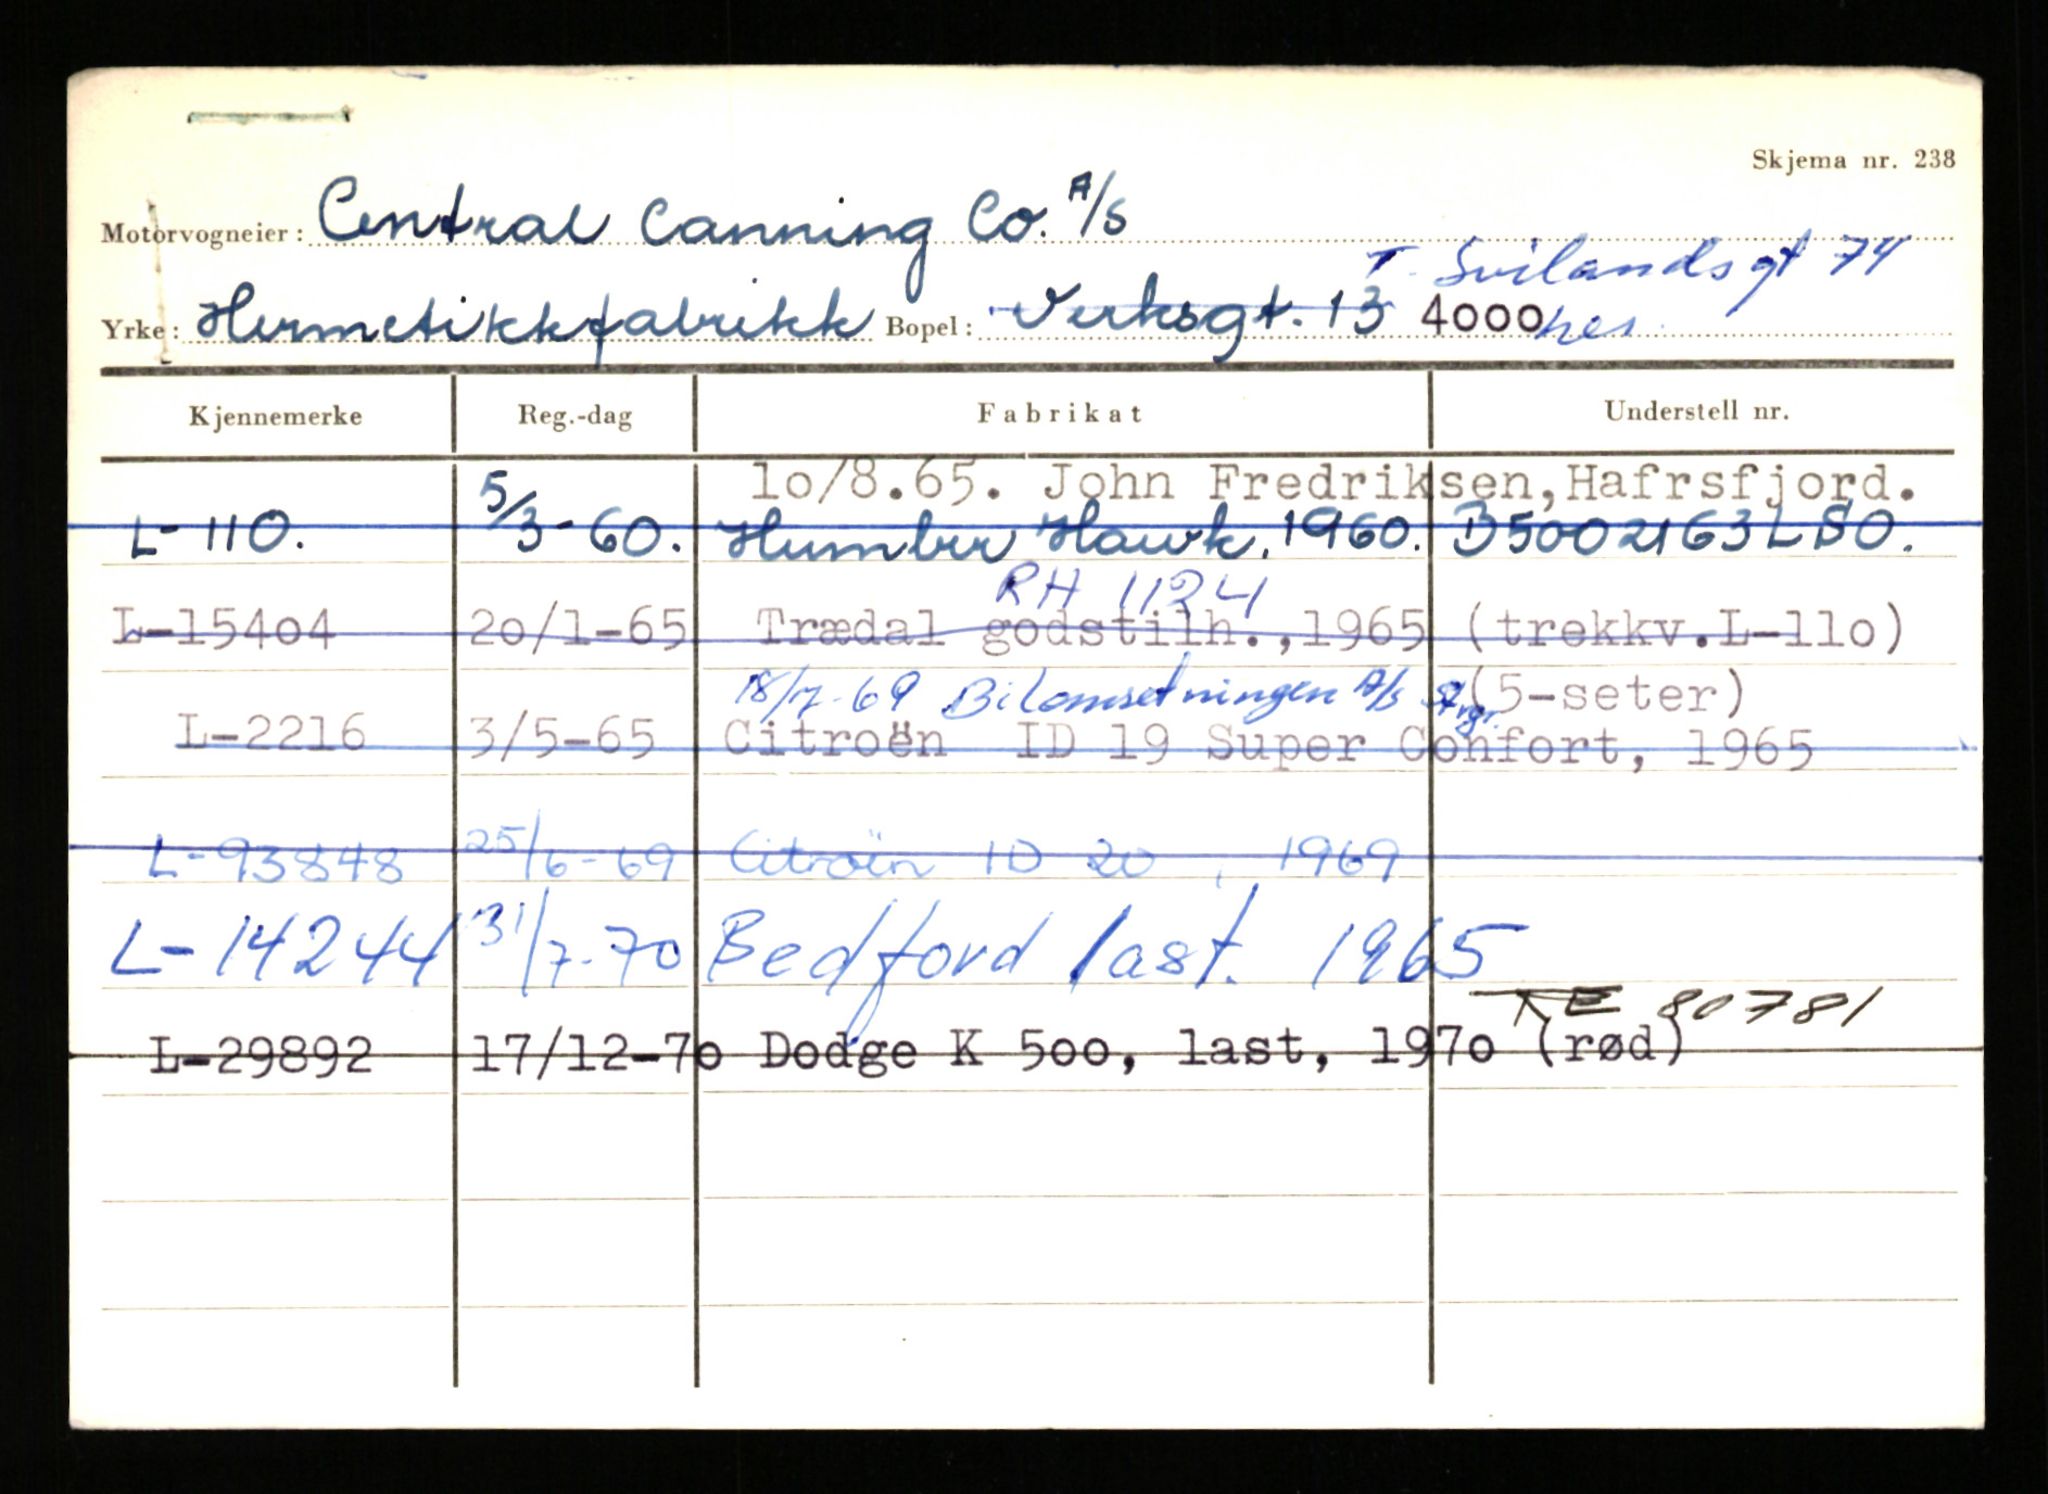 Skjema nr. 238
Motorvogneier: Central Canning Co. A/S
T. Svilandsgt 74
Yrke: Hermetikkfabrikk Bopel: Verksgt. 13 4000 her
Kjennemerke Reg.-dag Fabrikat Understell nr.
10/8.65. John Fredriksen, Hafrsfjord.
L-110. 5/3-60. Humber Hawk, 1960. B5002163LSO.
RH 1124
L-15404 20/1-65 Trædal godstilh., 1965 (trekkv.L-110)
18/7-69 Bilomsetningen A/S (5-seter)
L-2216 3/5-65 Citroën ID 19 Super Confort, 1965
L-93848 25/6-69 Citroën ID 20, 1969
L-14244 31/7-70 Bedford last. 1965
KE 80781
L-29892 17/12-70 Dodge K 500, last, 1970 (rød)